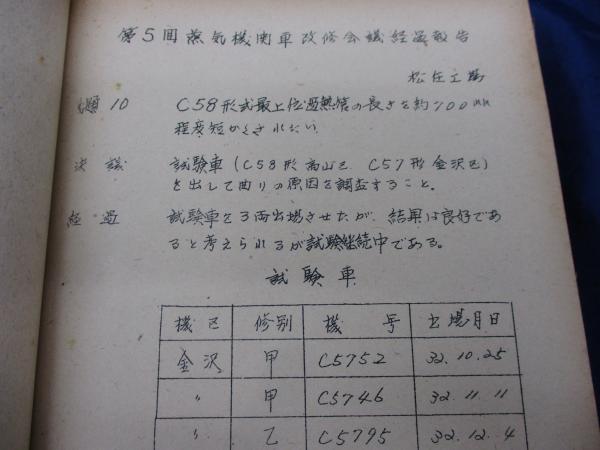 第5回蒸気機関車改修会議経過報告
松任工場
問題10 C58形式最上位過熱管の長さを約700mm
程度短かくされたい
決議 試験車(C58形高山区 C57形金沢区)
を出して曲りの原因を調査すること。
経過 試験車を3両出場させたが、結果は良好であ
ると考えられるが試験継続中である。
試験車
機区 修別 機号 出場月日
金沢 甲 C5752 32.10.25
〃 甲 C5746 32.11.11
〃 乙 C5795 32.12.4